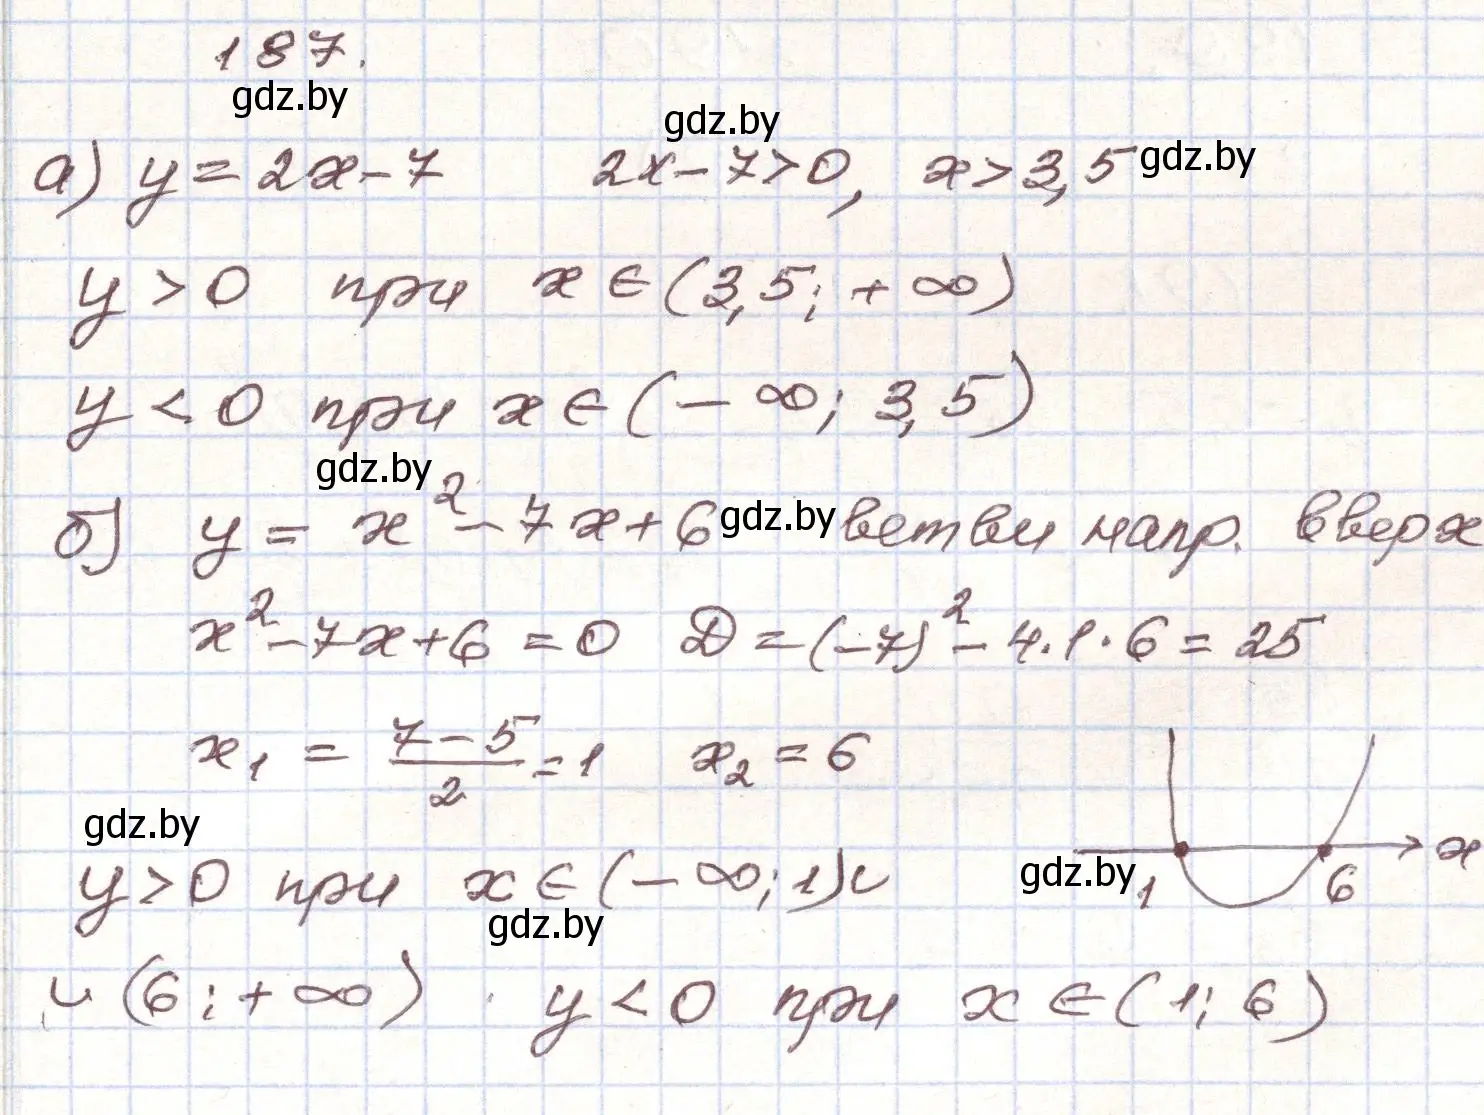 187.
gdz.by
gdz.by
а) y = 2x - 7 2x - 7 > 0, x > 3,5 gdz.by
y > 0 при x ∈ (3,5; + ∞)
y < 0 при x ∈ (- ∞; 3,5)
gdz.by
б) y = x² - 7x + 6 gdz.by ветви напр. вверх
x² - 7x + 6 = 0 D = (-7)² - 4·1·6 = 25
x₁ = (7 - 5)/2 = 1 x₂ = 6
gdz.by
x
gdz.by 1 6
y > 0 при x ∈ (- ∞; 1) ∪
gdz.by
∪ (6; + ∞) y < 0 при x ∈ (1; 6)